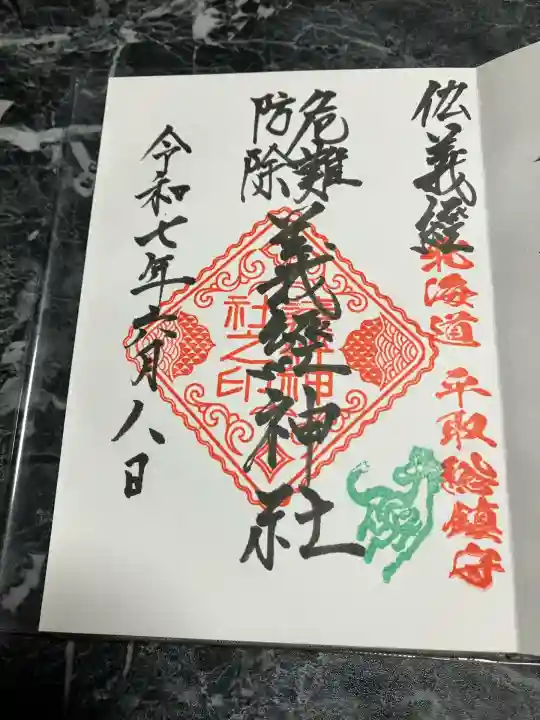 仏義経
北海道 平取総鎮守
危難
防除
義經神社
義經神
社之印
令和七年六月八日